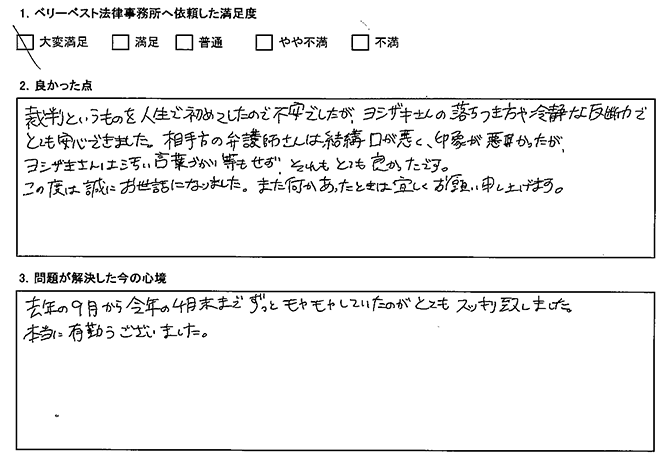 1. ベリーベスト法律事務所へ依頼した満足度
大変満足 満足 普通 やや不満 不満
2. 良かった点
裁判というものを人生で初めてしたので不安でしたが、ヨシザキさんの落ちつき方や冷静な判断力で
とても安心できました。相手方の弁護師さんは結構口が悪く、印象が悪かったが、
ヨシザキさんは言葉づかい等もせず、それもとても良かったです。
この度は誠にお世話になりました。また何かあったときは宜しくお願い申し上げます。
3. 問題が解決した今の心境
去年の9月から今年の4月末までずっとモヤモヤしていたのがとてもスッキリ致しました。
本当に有勤うございました。